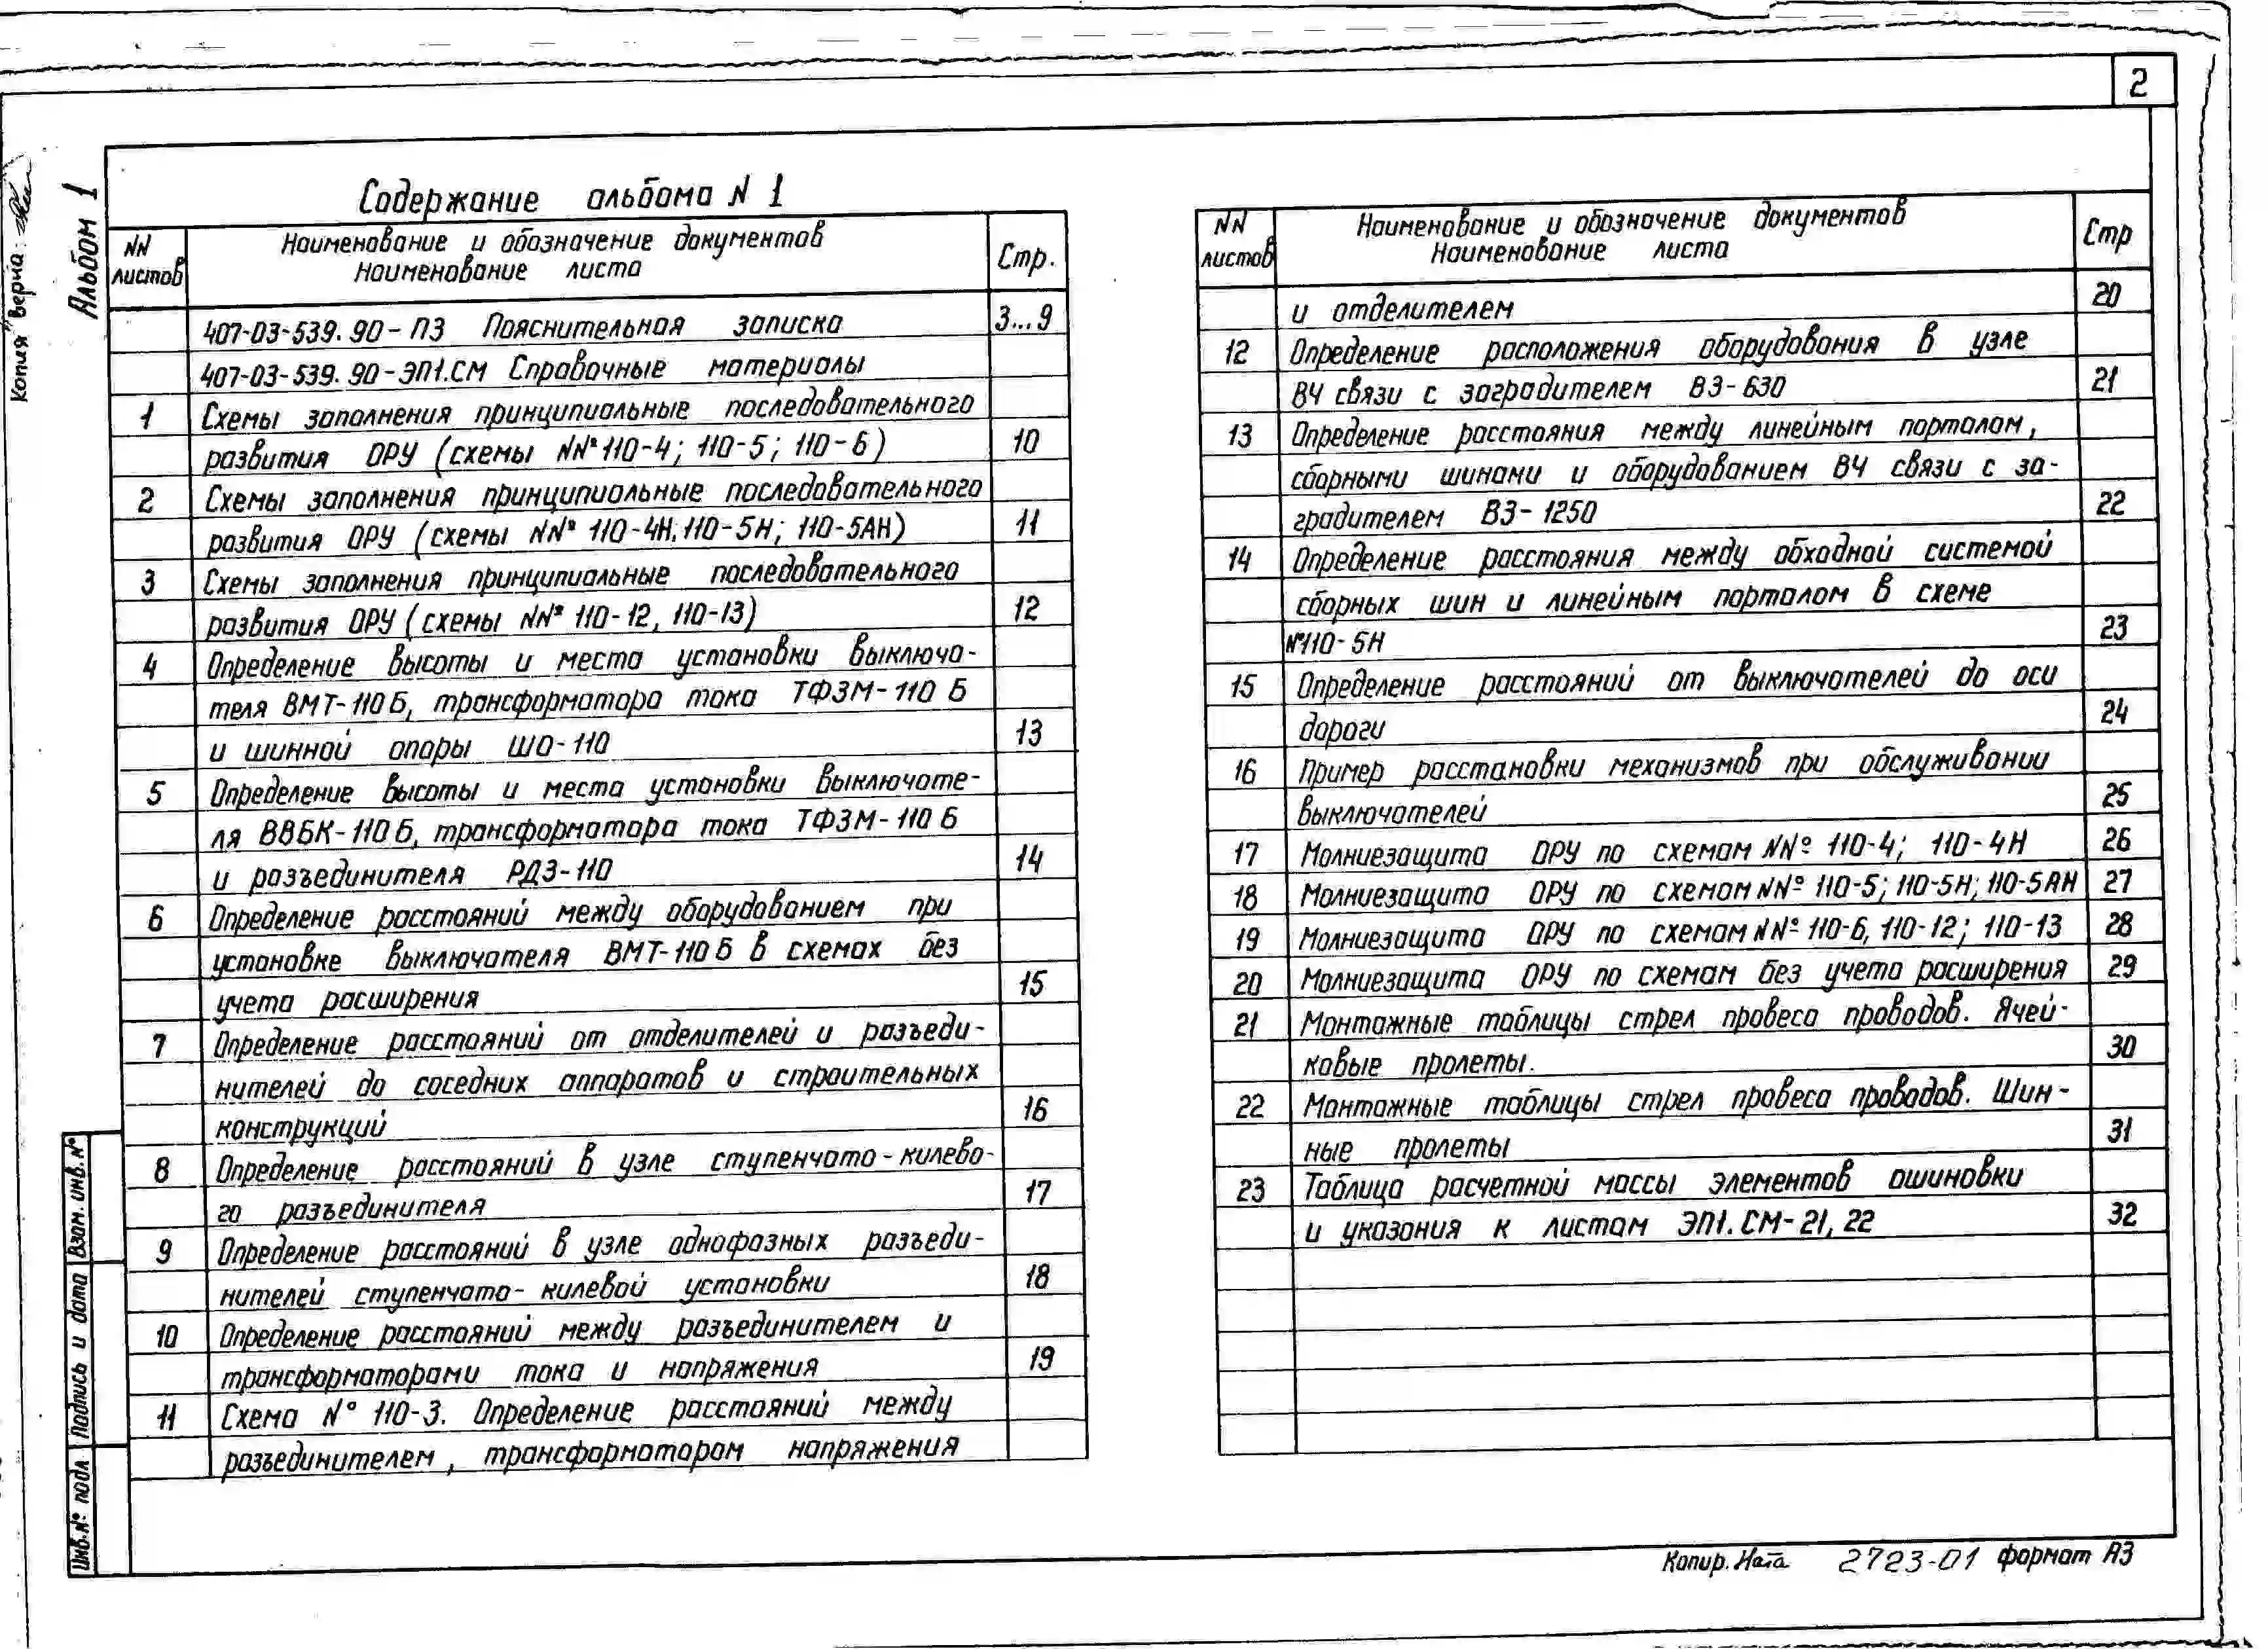 2
Копия верна:
Альбом 1
Содержание альбома N 1
NN листов
Наименование и обозначение документов
Наименование листа
Стр.
407-03-539.90-ПЗ Пояснительная записка 3...9
407-03-539.90-ЭП1.СМ Справочные материалы
1 Схемы заполнения принципиальные последовательного
развития ОРУ (схемы NNº 110-4; 110-5; 110-6) 10
2 Схемы заполнения принципиальные последовательного
развития ОРУ (схемы NNº 110-4Н, 110-5Н; 110-5АН) 11
3 Схемы заполнения принципиальные последовательного
развития ОРУ (схемы NNº 110-12, 110-13) 12
4 Определение высоты и места установки выключа-
теля ВМТ-110Б, трансформатора тока ТФЗМ-110 Б
и шинной опоры ШО-110 13
5 Определение высоты и места установки выключате-
ля ВВБК-110Б, трансформатора тока ТФЗМ-110 Б
и разъединителя РДЗ-110 14
6 Определение расстояний между оборудованием при
установке выключателя ВМТ-110Б в схемах без
учета расширения 15
7 Определение расстояний от отделителей и разъеди-
нителей до соседних аппаратов и строительных
конструкций 16
8 Определение расстояний в узле ступенчато-килево-
го разъединителя 17
9 Определение расстояний в узле однофазных разъеди-
нителей ступенчато-килевой установки 18
10 Определение расстояний между разъединителем и
трансформаторами тока и напряжения 19
11 Схема Nº 110-3. Определение расстояний между
разъединителем, трансформатором напряжения
NN листов
Наименование и обозначение документов
Наименование листа
Стр
и отделителем 20
12 Определение расположения оборудования в узле
ВЧ связи с заградителем ВЗ-630 21
13 Определение расстояния между линейным порталом,
сборными шинами и оборудованием ВЧ связи с за-
градителем ВЗ-1250 22
14 Определение расстояния между обходной системой
сборных шин и линейным порталом в схеме
Nº110-5Н 23
15 Определение расстояний от выключателей до оси
дороги 24
16 Пример расстановки механизмов при обслуживании
выключателей 25
17 Молниезащита ОРУ по схемам NNº 110-4; 110-4Н 26
18 Молниезащита ОРУ по схемам NNº 110-5; 110-5Н; 110-5АН 27
19 Молниезащита ОРУ по схемам NNº 110-6, 110-12; 110-13 28
20 Молниезащита ОРУ по схемам без учета расширения 29
21 Монтажные таблицы стрел провеса проводов. Ячей-
ковые пролеты. 30
22 Монтажные таблицы стрел провеса проводов. Шин-
ные пролеты 31
23 Таблица расчетной массы элементов ошиновки
и указания к листам ЭП1.СМ-21, 22 32
Инв.Nº подл Подпись и дата Взам. инв. Nº
Копир. Ната 2723-01 формат А3